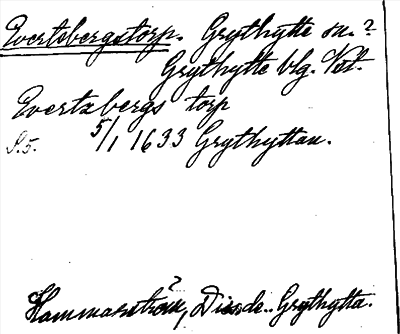 Evertsbergstorp. Grythytte sn.?
Grythytte blg. Vstm.
Evertzbergs torp
S. 5. 5/1 1633 Grythyttan.
?
Hammarström, Diss. de.. Grythytta.